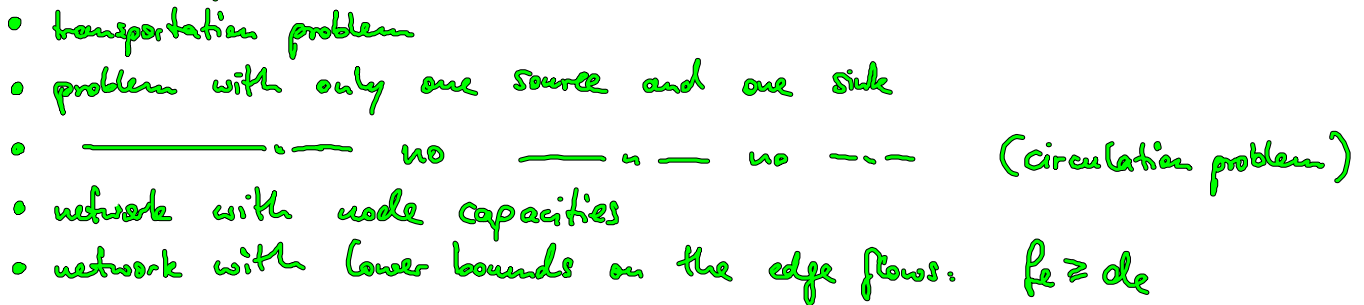 • transportation problem
• problem with only one source and one sink
• —————"—— no ———"—— no —"— (circulation problem)
• network with node capacities
• network with lower bounds on the edge flows: fe ≥ de